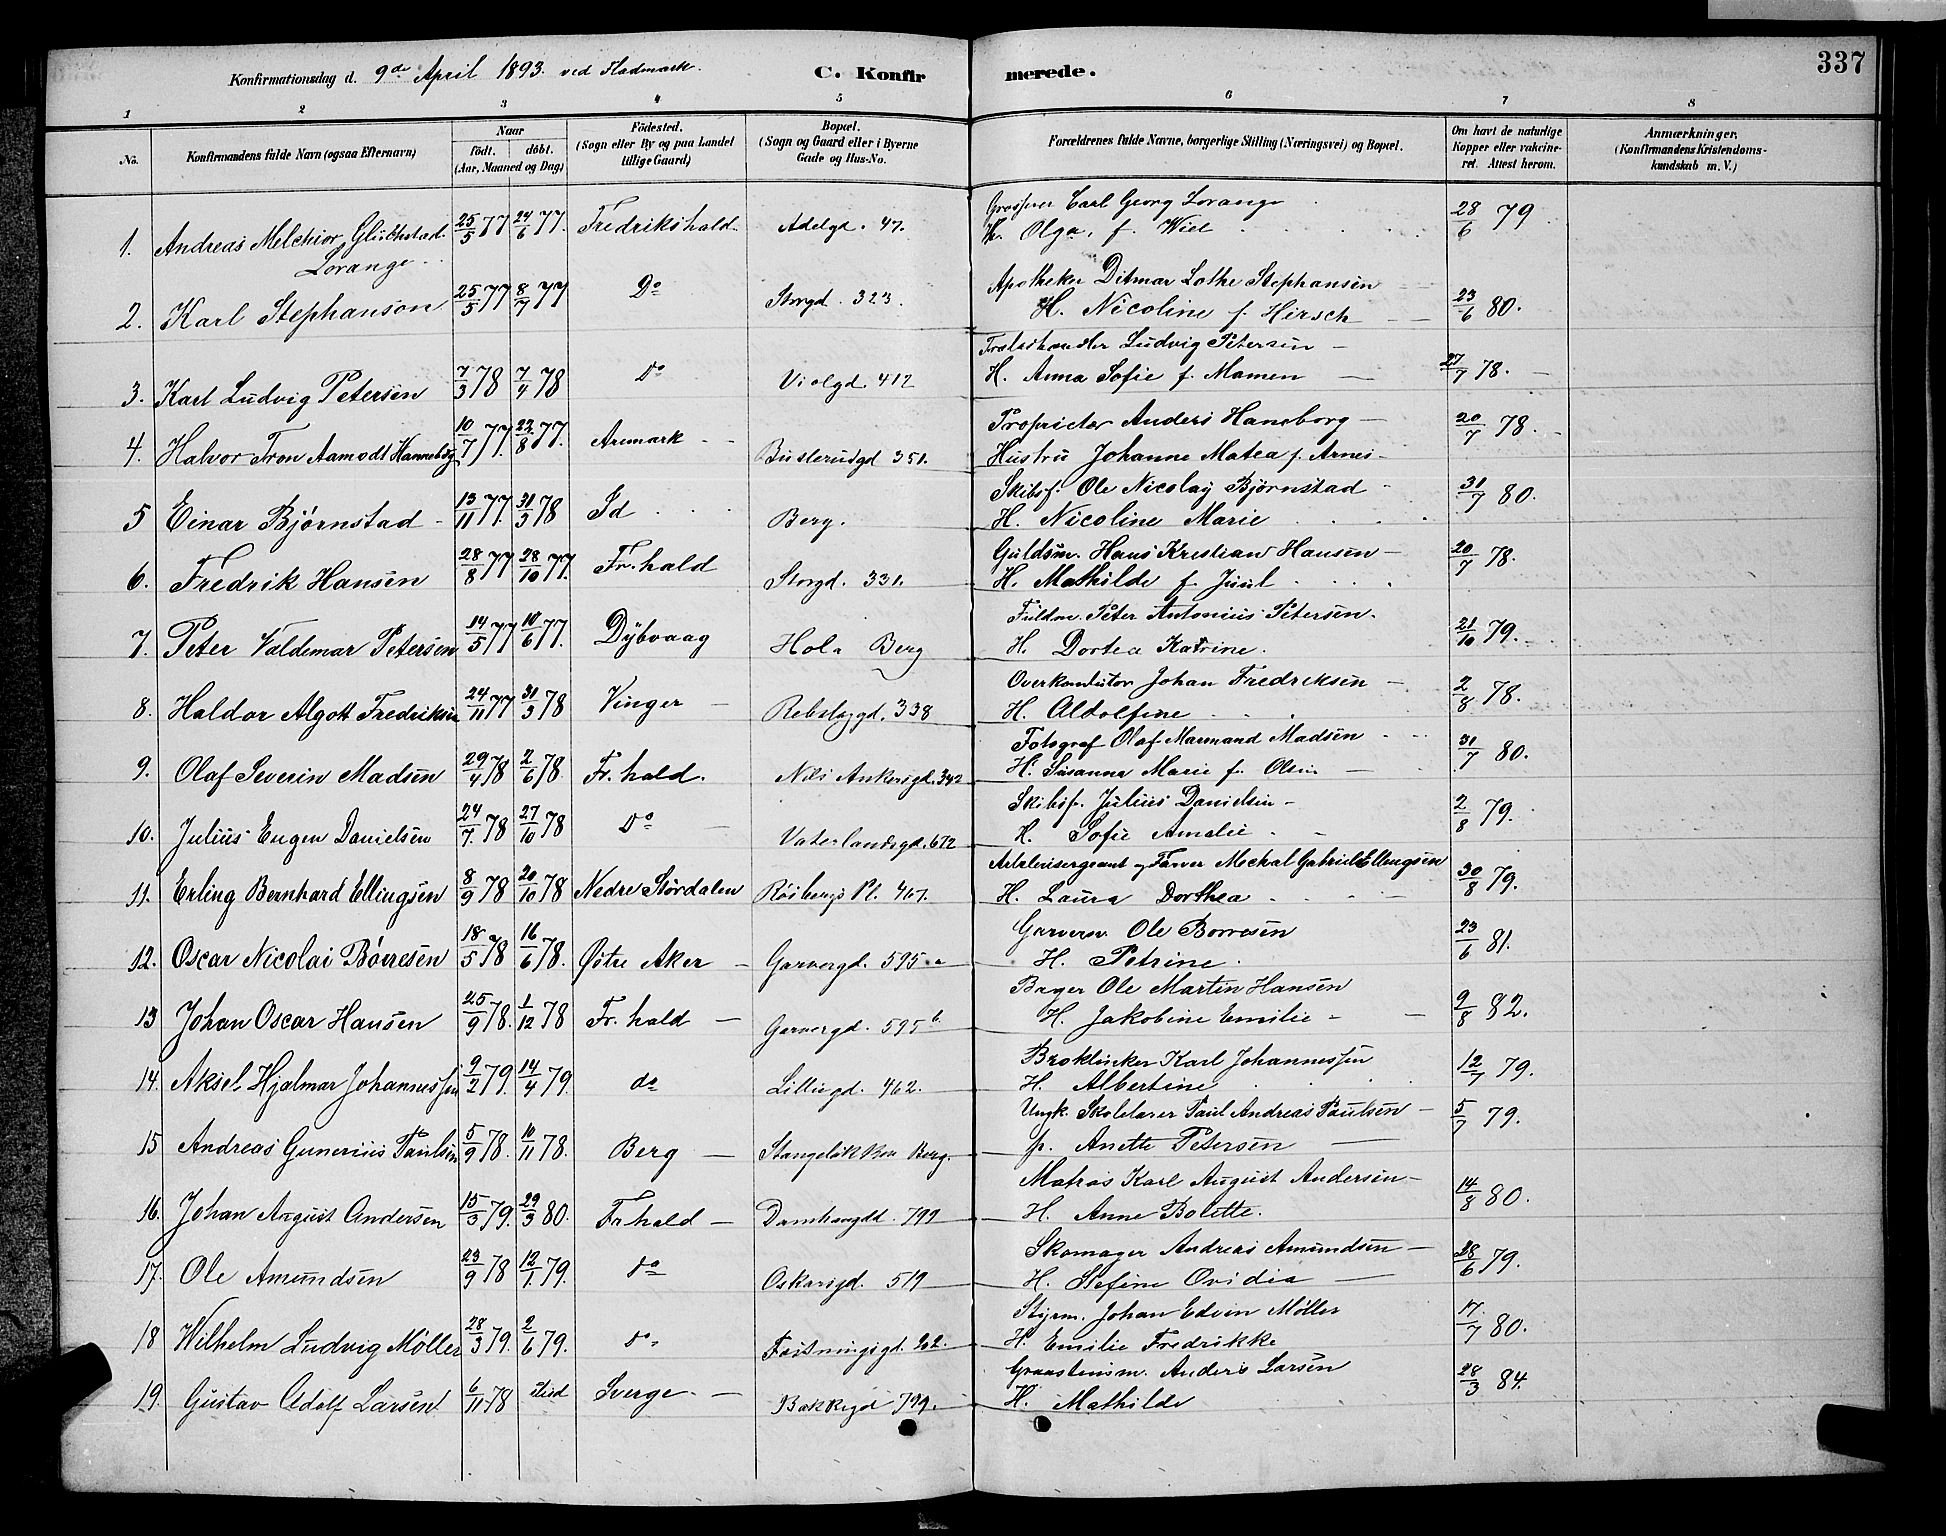 337
Konfirmationsdag d. 9de April 1893. ved C. Konfirmerede.
1 2 3 4 5 6 7 8
No. Konfirmandens fulde Navn (ogsaa Efternavn) Naar født. døbt. (Aar, Maaned og Dag) Fødested. (Sogn eller By og paa Landet tillige Gaard) Bopæl. (Sogn og Gaard eller i Byerne Gade og Hus-No. Forældrenes fulde Navne, borgerlige Stilling (Næringsvei) og Bopæl. Om havt de naturlige Kopper eller vakcineret. Attest herom. Anmærkninger. (Konfirmandens Kristendomskundskab m. V.)
1. Andreas Melchior Glückstad Lorange 25/5 77 24/6 77. Fredrikshald. Adelgd. 47. Grosserer Carl Georg Lorange H. Olga, f. Wiel 28/6 79
2. Karl Stephanson 25/5 77 8/7 77 Do Storgd. 323. Apotheker Ditmar Lothe Stephansen H. Nicoline f. Hirsch 23/6 80.
3. Karl Ludvig Petersen 7/3 78 7/4 78 Do Violgd. 412 Trælasthandler Ludvig Petersen H. Anna Sofie f. Mamen 27/7 78.
4. Halvor Tron Aamodt Hanneborg 10/7 77. 22/8 77. Aremark Busterudgd 351. Proprietær Anders Haneborg Hustru Johanne Matea f. Arnes 20/7 78.
5 Einar Bjørnstad 13/11 77. 31/3 78 Id Berg. Skibsf. Ole Nicolay Bjørnstad H. Nicoline Marie 31/7 80.
6. Fredrik Hansen 28/8 77 28/10 77. Fr.hald Storgd. 331. Guldsm. Hans Kristian Hansen H. Mathilde f. Juul 20/7 78.
7. Peter Valdemar Petersen 14/5 77 10/6 77. Dybvaag Hola Berg Peter Antonius Petersen. H. Dortea Katrine. 21/10 79.
8. Haldor Algott Fredriksen 24/11 77 31/3 78 Vinger Rebslaggd. 338 Overkonduktør Johan Fredriksen H. Aldolfine 2/8 78.
9. Olaf Severin Madsen 29/4 78 2/6 78. Fr. hald. Nils Ankersgd. 342 Fotograf Olaf Marmand Madsen H. Susanna Marie f. Olsen 31/7 80.
10. Julius Eugen Danielsen 24/7. 78 27/10 78 Do Vaterlandsgd. 672 Skibsf. Julius Danielsen H. Sofie Amalie 2/8 79.
11. Erling Bernhard Ellingsen 8/9 78 20/10 78 Nedre Stördalen Røsbergs Pl. 467. Artelerisergeant og Farver Mechal Gabriel Ellingsen H. Laura Dorthea 30/8 79.
12. Oscar Nicolai Børresen 18/5 78 16/6 78. Østre Aker Garvergd. 595 a Garversv. Ole Borresen H. Petrine. 23/6 81.
13 Johan Oscar Hansen 25/9 78. 1/12 78 Fr. hald Garvergd. 595 b. Bager Ole Martin Hansen H. Jakobine Emilie 9/8 82.
14. Aksel Hjalmar Johannessen 9/2 79. 14/4 79. do Lillegd. 462. Brolinker Karl Johannessen H. Albertine 12/7 79.
15 Andreas Gunerius Paulsen 5/9 78. 10/11 78. Berg Stangeløkken Berg. Ungk. Skolelærer Paul Andreas Paulsen p. Anette Petersen 5/7 79.
16. Johan August Andersen 15/3 79. 29/3 80. Fr hald Damhavgd. 799 Matros Karl August Andersen H. Anne Bolette. 14/8 80.
17. Ole Amundsen 23/9 78 12/1. 79. do Oskarsgd. 519 Skomager Andreas Amundsen H. Stefine Ovidia 28/6 79.
18 Wilhelm Ludvig Møller 28/3 79. 2/6 79. do Fæstningsgd. 202. Styrm. Johan Edvin Møller H. Emilie Fredrikke 17/7 80.
19. Gustav Adolf Larsen 6/11 78 Sverge. Bakkegd 799. Graastensm. Anders Larsen H. Mathilde 28/3 84.